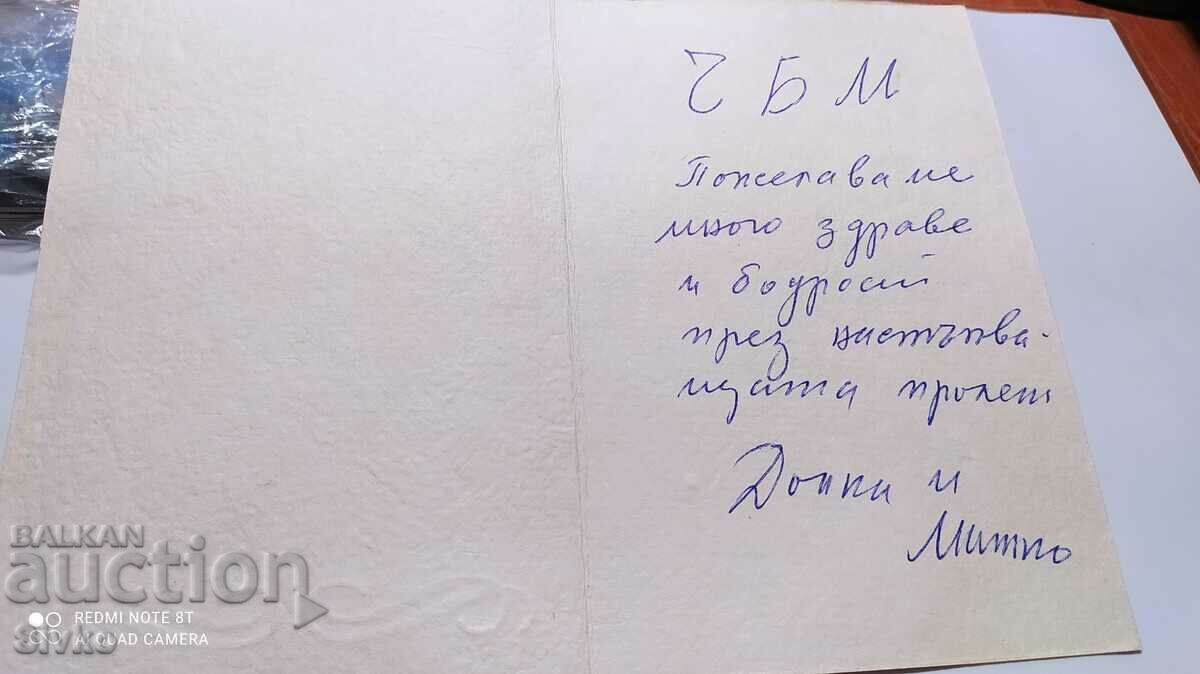 Ч Б М
Пожелаваме
много здраве
и бодрост
през настъпва-
щата пролет
Донка и
Митко
BALKAN
auction
REDMI NOTE 8T
AI QUAD CAMERA
sivko